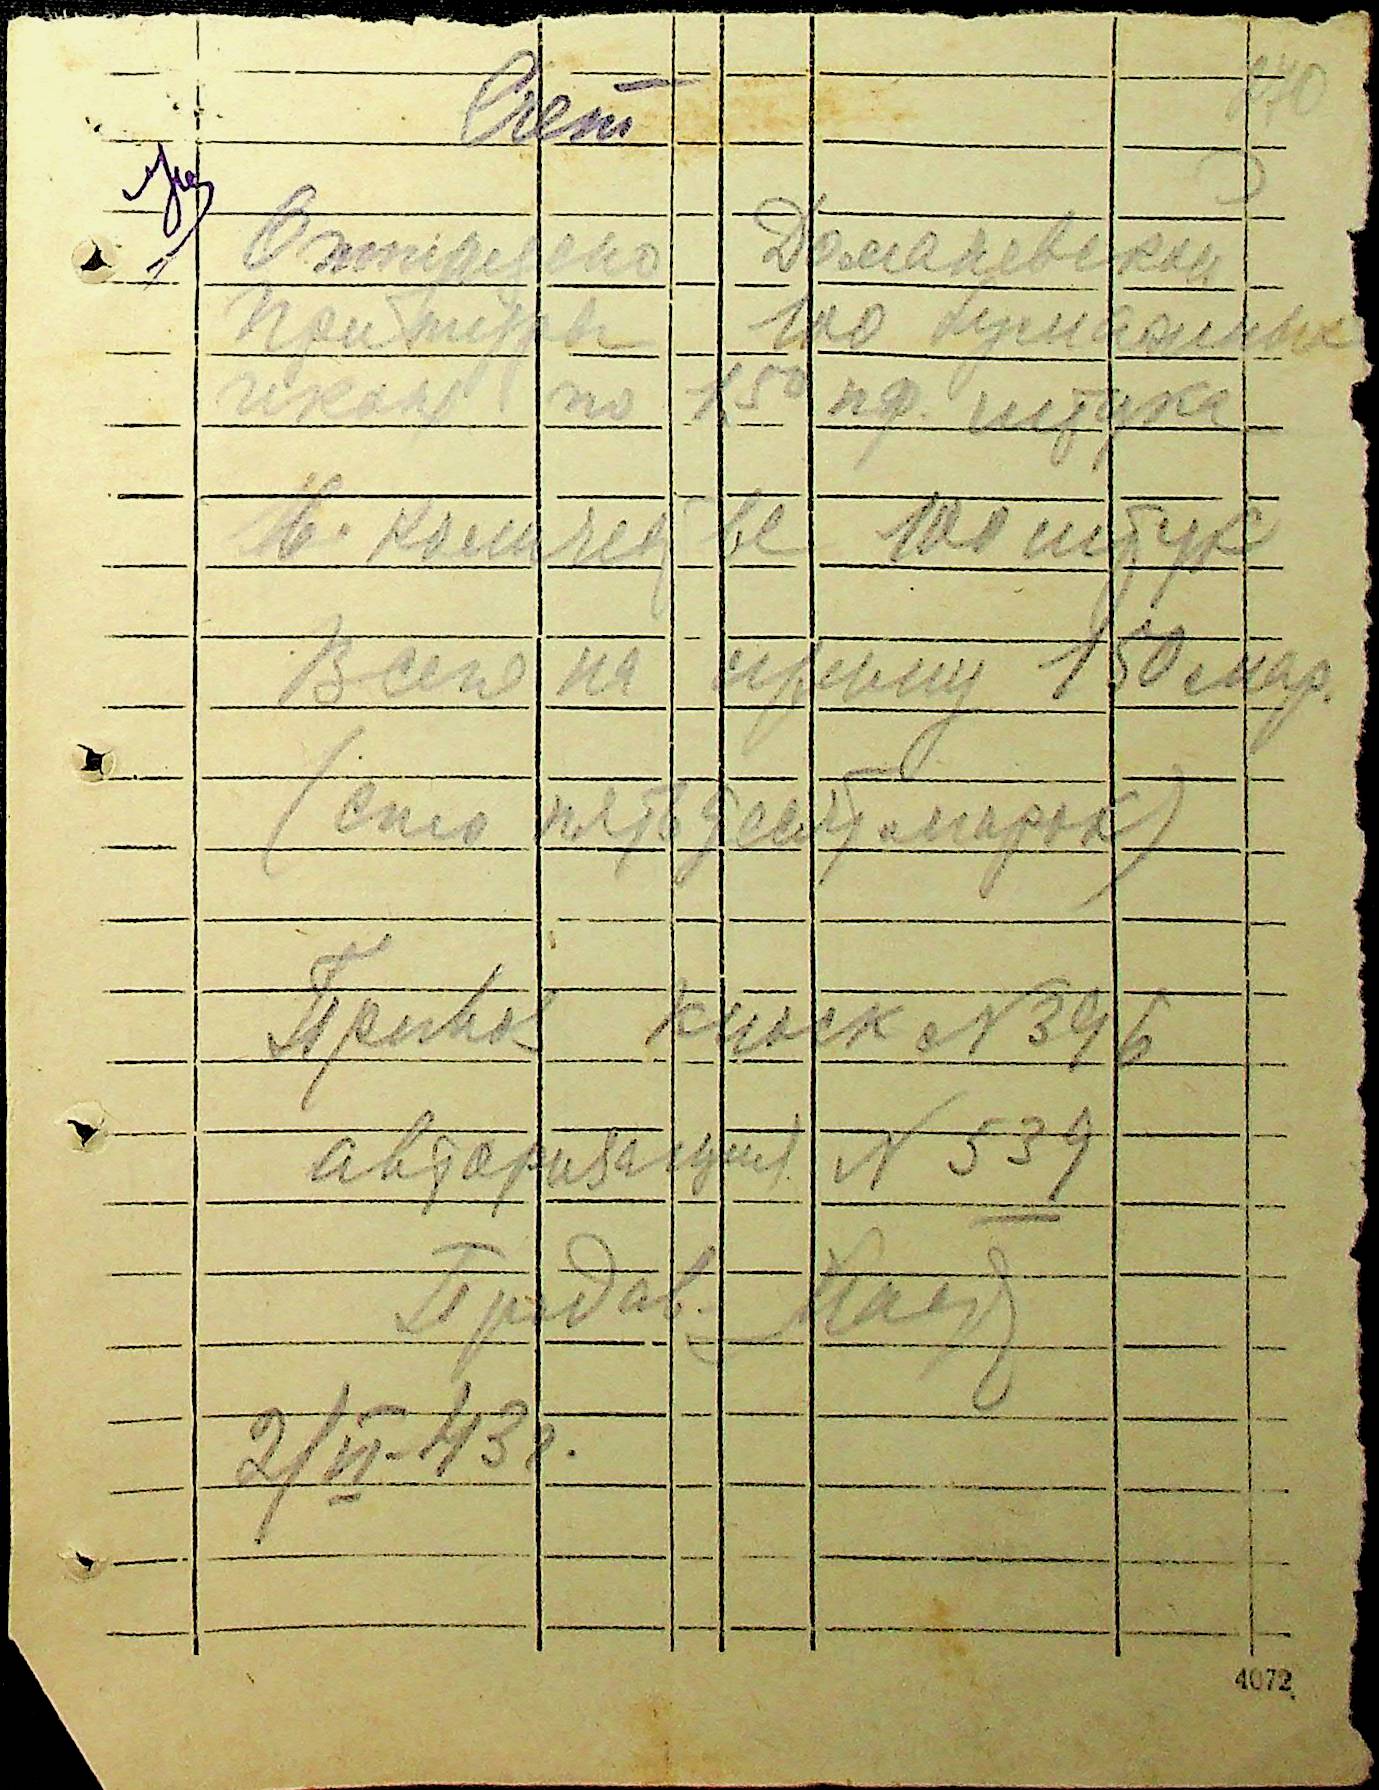 Счет
Отпущено Доманевской
Претуры 100 бумажных
икон по 1,50 пф. штука
в количестве 100 штук
Всего на сумму 150 мар.
(сто пятьдесят марок)
киоск N 396
авторизация N 539
Продав.
2/VI-43г.
4072